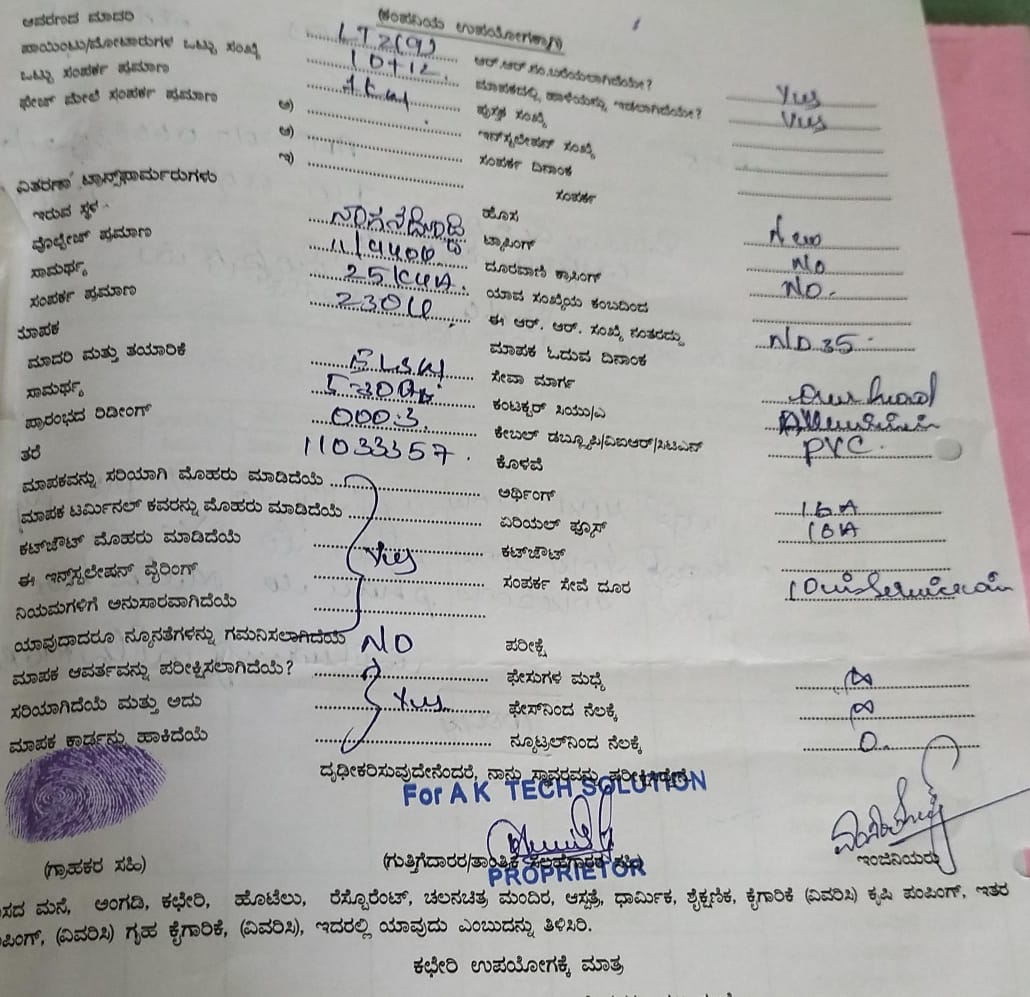 (ಕಂಪನಿಯ ಉಪಯೋಗಕ್ಕಾಗಿ)
ಆವರಣದ ಮಾದರಿ LT2(a) ಆರ್.ಆರ್.ಸಂ.ಬರೆಯಲಾಗಿದೆಯೇ? Yes
ಪಾಯಿಂಟು/ಮೋಟಾರುಗಳ ಒಟ್ಟು ಸಂಖ್ಯೆ 10+12 ಮಾಪಕದಲ್ಲಿ ಹಾಳೆಯನ್ನು ಇಡಲಾಗಿದೆಯೇ? Yes
ಒಟ್ಟು ಸಂಪರ್ಕ ಪ್ರಮಾಣ ಪುಸ್ತಕ ಸಂಖ್ಯೆ
ಫೇಜ್ ಮೇಲೆ ಸಂಪರ್ಕ ಪ್ರಮಾಣ ಅ) ಇನ್‌ಸ್ಟಲೇಷನ್ ಸಂಖ್ಯೆ
ಆ) ಸಂಪರ್ಕ ದಿನಾಂಕ
ಇ) ಸಂಪರ್ಕ
ವಿತರಣಾ ಟ್ರಾನ್ಸ್‌ಫಾರ್ಮರುಗಳು
ಇರುವ ಸ್ಥಳ ಹೊಸ New
ವೋಲ್ಟೇಜ್ ಪ್ರಮಾಣ 11/440v ಟ್ಯಾಪಿಂಗ್ No
ಸಾಮರ್ಥ್ಯ 25KVA. ದೂರವಾಣಿ ಕ್ರಾಸಿಂಗ್ No.
ಸಂಪರ್ಕ ಪ್ರಮಾಣ 230V ಯಾವ ಸಂಖ್ಯೆಯ ಕಂಬದಿಂದ
ಮಾಪಕ ಈ ಆರ್. ಆರ್. ಸಂಖ್ಯೆ ನಂತರದ್ದು ND35
ಮಾದರಿ ಮತ್ತು ತಯಾರಿಕೆ ಮಾಪಕ ಓದುವ ದಿನಾಂಕ
ಸಾಮರ್ಥ್ಯ ಸೇವಾ ಮಾರ್ಗ
ಪ್ರಾರಂಭದ ರಿಡೀಂಗ್ 0003. ಕಂಟಕ್ಟರ್ ಸಿಯು/ಎ
ತರೆ 11033357. ಕೇಬಲ್ ಡಬ್ಲ್ಯೂಪಿ/ವಿಐಆರ್/ಸಿಟಿಎಸ್ PVC.
ಕೊಳವೆ
ಮಾಪಕವನ್ನು ಸರಿಯಾಗಿ ಮೊಹರು ಮಾಡಿದೆಯೆ ಅರ್ಥಿಂಗ್ 16A
ಮಾಪಕ ಟರ್ಮಿನಲ್ ಕವರನ್ನು ಮೊಹರು ಮಾಡಿದೆಯೆ ಏರಿಯಲ್ ಫ್ಯೂಸ್ 16A
ಕಟ್‌ಔಟ್ ಮೊಹರು ಮಾಡಿದೆಯೆ Yes ಕಟ್‌ಔಟ್
ಈ ಇನ್‌ಸ್ಟಲೇಷನ್ ವೈರಿಂಗ್ ಸಂಪರ್ಕ ಸೇವೆ ದೂರ
ನಿಯಮಗಳಿಗೆ ಅನುಸಾರವಾಗಿದೆಯೆ
ಯಾವುದಾದರೂ ನ್ಯೂನತೆಗಳನ್ನು ಗಮನಿಸಲಾಗಿದೆಯೆ NO ಪರೀಕ್ಷೆ
ಮಾಪಕ ಆವರ್ತವನ್ನು ಪರೀಕ್ಷಿಸಲಾಗಿದೆಯೆ? ಫೇಸುಗಳ ಮಧ್ಯೆ ∞
ಸರಿಯಾಗಿದೆಯೆ ಮತ್ತು ಅದು Yes ಫೇಸ್‌ನಿಂದ ನೆಲಕ್ಕೆ ∞
ಮಾಪಕ ಕಾರ್ಡನ್ನು ಹಾಕಿದೆಯೆ ನ್ಯೂಟ್ರಲ್‌ನಿಂದ ನೆಲಕ್ಕೆ 0.
ದೃಢೀಕರಿಸುವುದೇನೆಂದರೆ, ನಾನು ಸ್ಥಾವರವನ್ನು ಪರೀಕ್ಷಿಸಿದ್ದೇನೆ.
For A K TECH SOLUTION
(ಗ್ರಾಹಕರ ಸಹಿ) (ಗುತ್ತಿಗೆದಾರರ/ತಾಂತ್ರಿಕ ಸಲಹೆಗಾರರ ಸಹಿ) ಇಂಜಿನಿಯರು
PROPRIETOR
ಸದ ಮನೆ, ಅಂಗಡಿ, ಕಛೇರಿ, ಹೊಟೇಲು, ರೆಸ್ಟೊರೆಂಟ್, ಚಲನಚಿತ್ರ ಮಂದಿರ, ಆಸ್ಪತ್ರೆ, ಧಾರ್ಮಿಕ, ಶೈಕ್ಷಣಿಕ, ಕೈಗಾರಿಕೆ (ವಿವರಿಸಿ) ಕೃಷಿ ಪಂಪಿಂಗ್, ಇತರ
ಪಿಂಗ್, (ವಿವರಿಸಿ) ಗೃಹ ಕೈಗಾರಿಕೆ, (ವಿವರಿಸಿ), ಇದರಲ್ಲಿ ಯಾವುದು ಎಂಬುದನ್ನು ತಿಳಿಸಿರಿ.
ಕಛೇರಿ ಉಪಯೋಗಕ್ಕೆ ಮಾತ್ರ